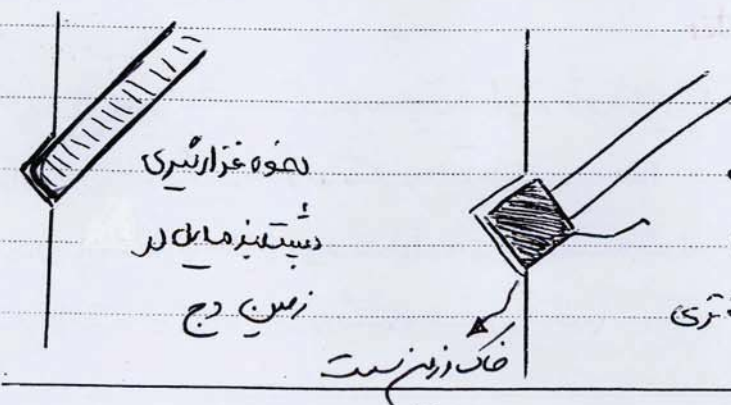 نحوه قرارگیری
پشت‌بند مایل در
زمین دج
خاک و زمین سست
تری